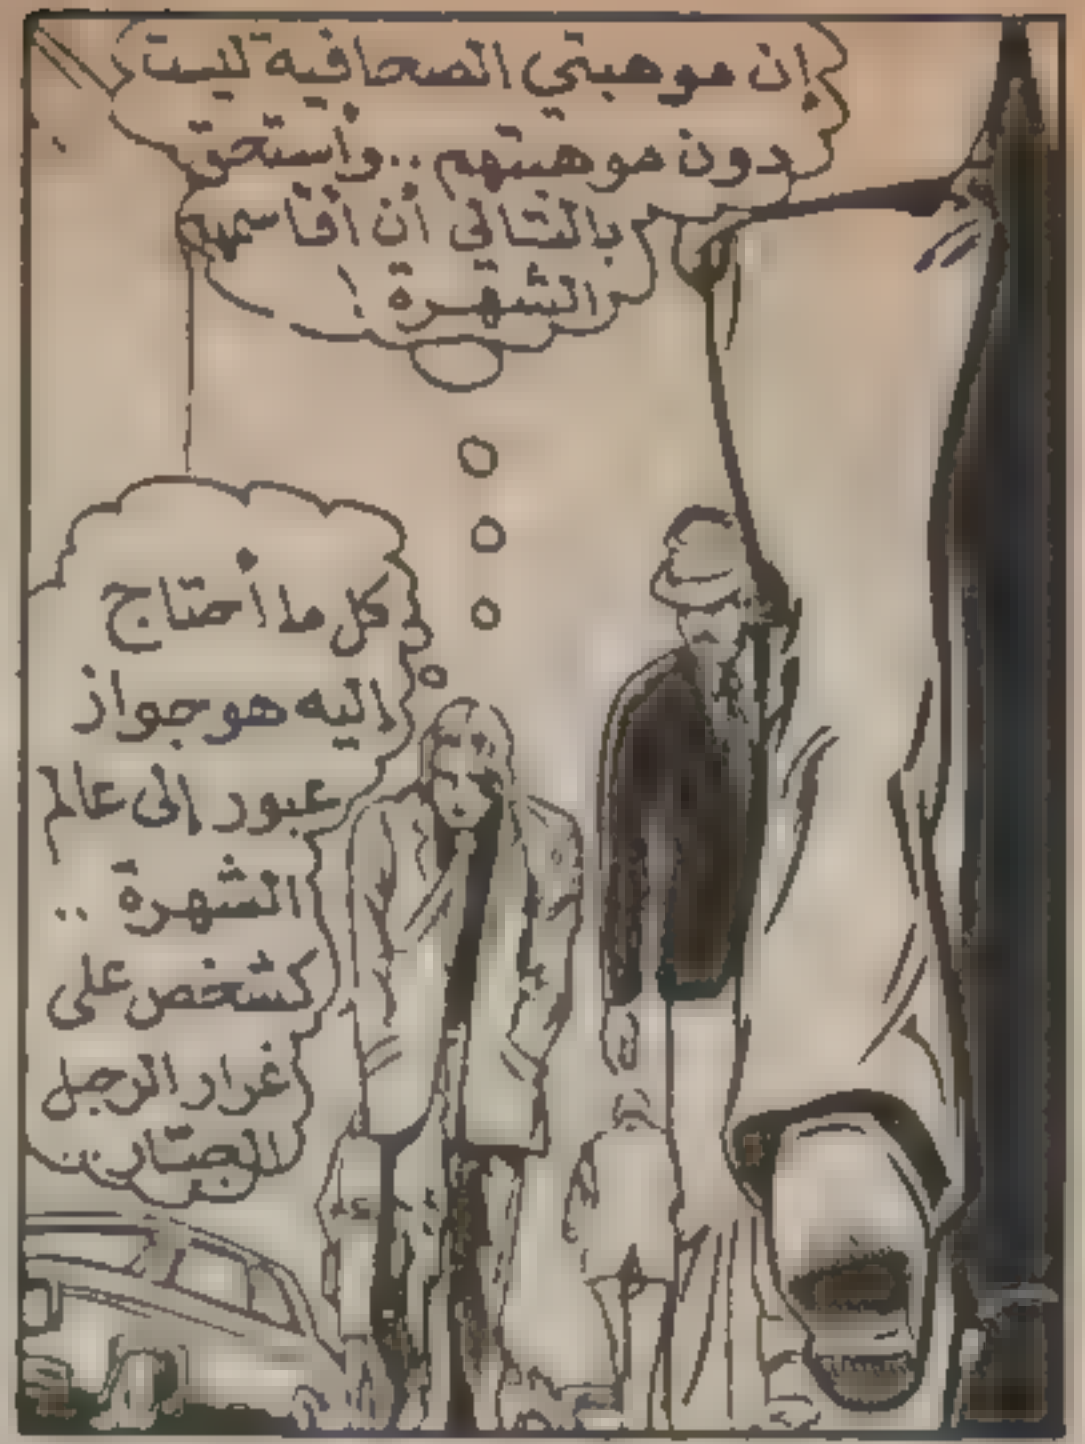 إن موهبتي الصحافية ليست
دون موهبتهم .. وأستحق
بالتالي أن أقاسمهم
الشهرة !
كل ما أحتاج
إليه هو جواز
عبور إلى عالم
الشهرة ..
كشخص على
غرار الرجل
الجبّار ..